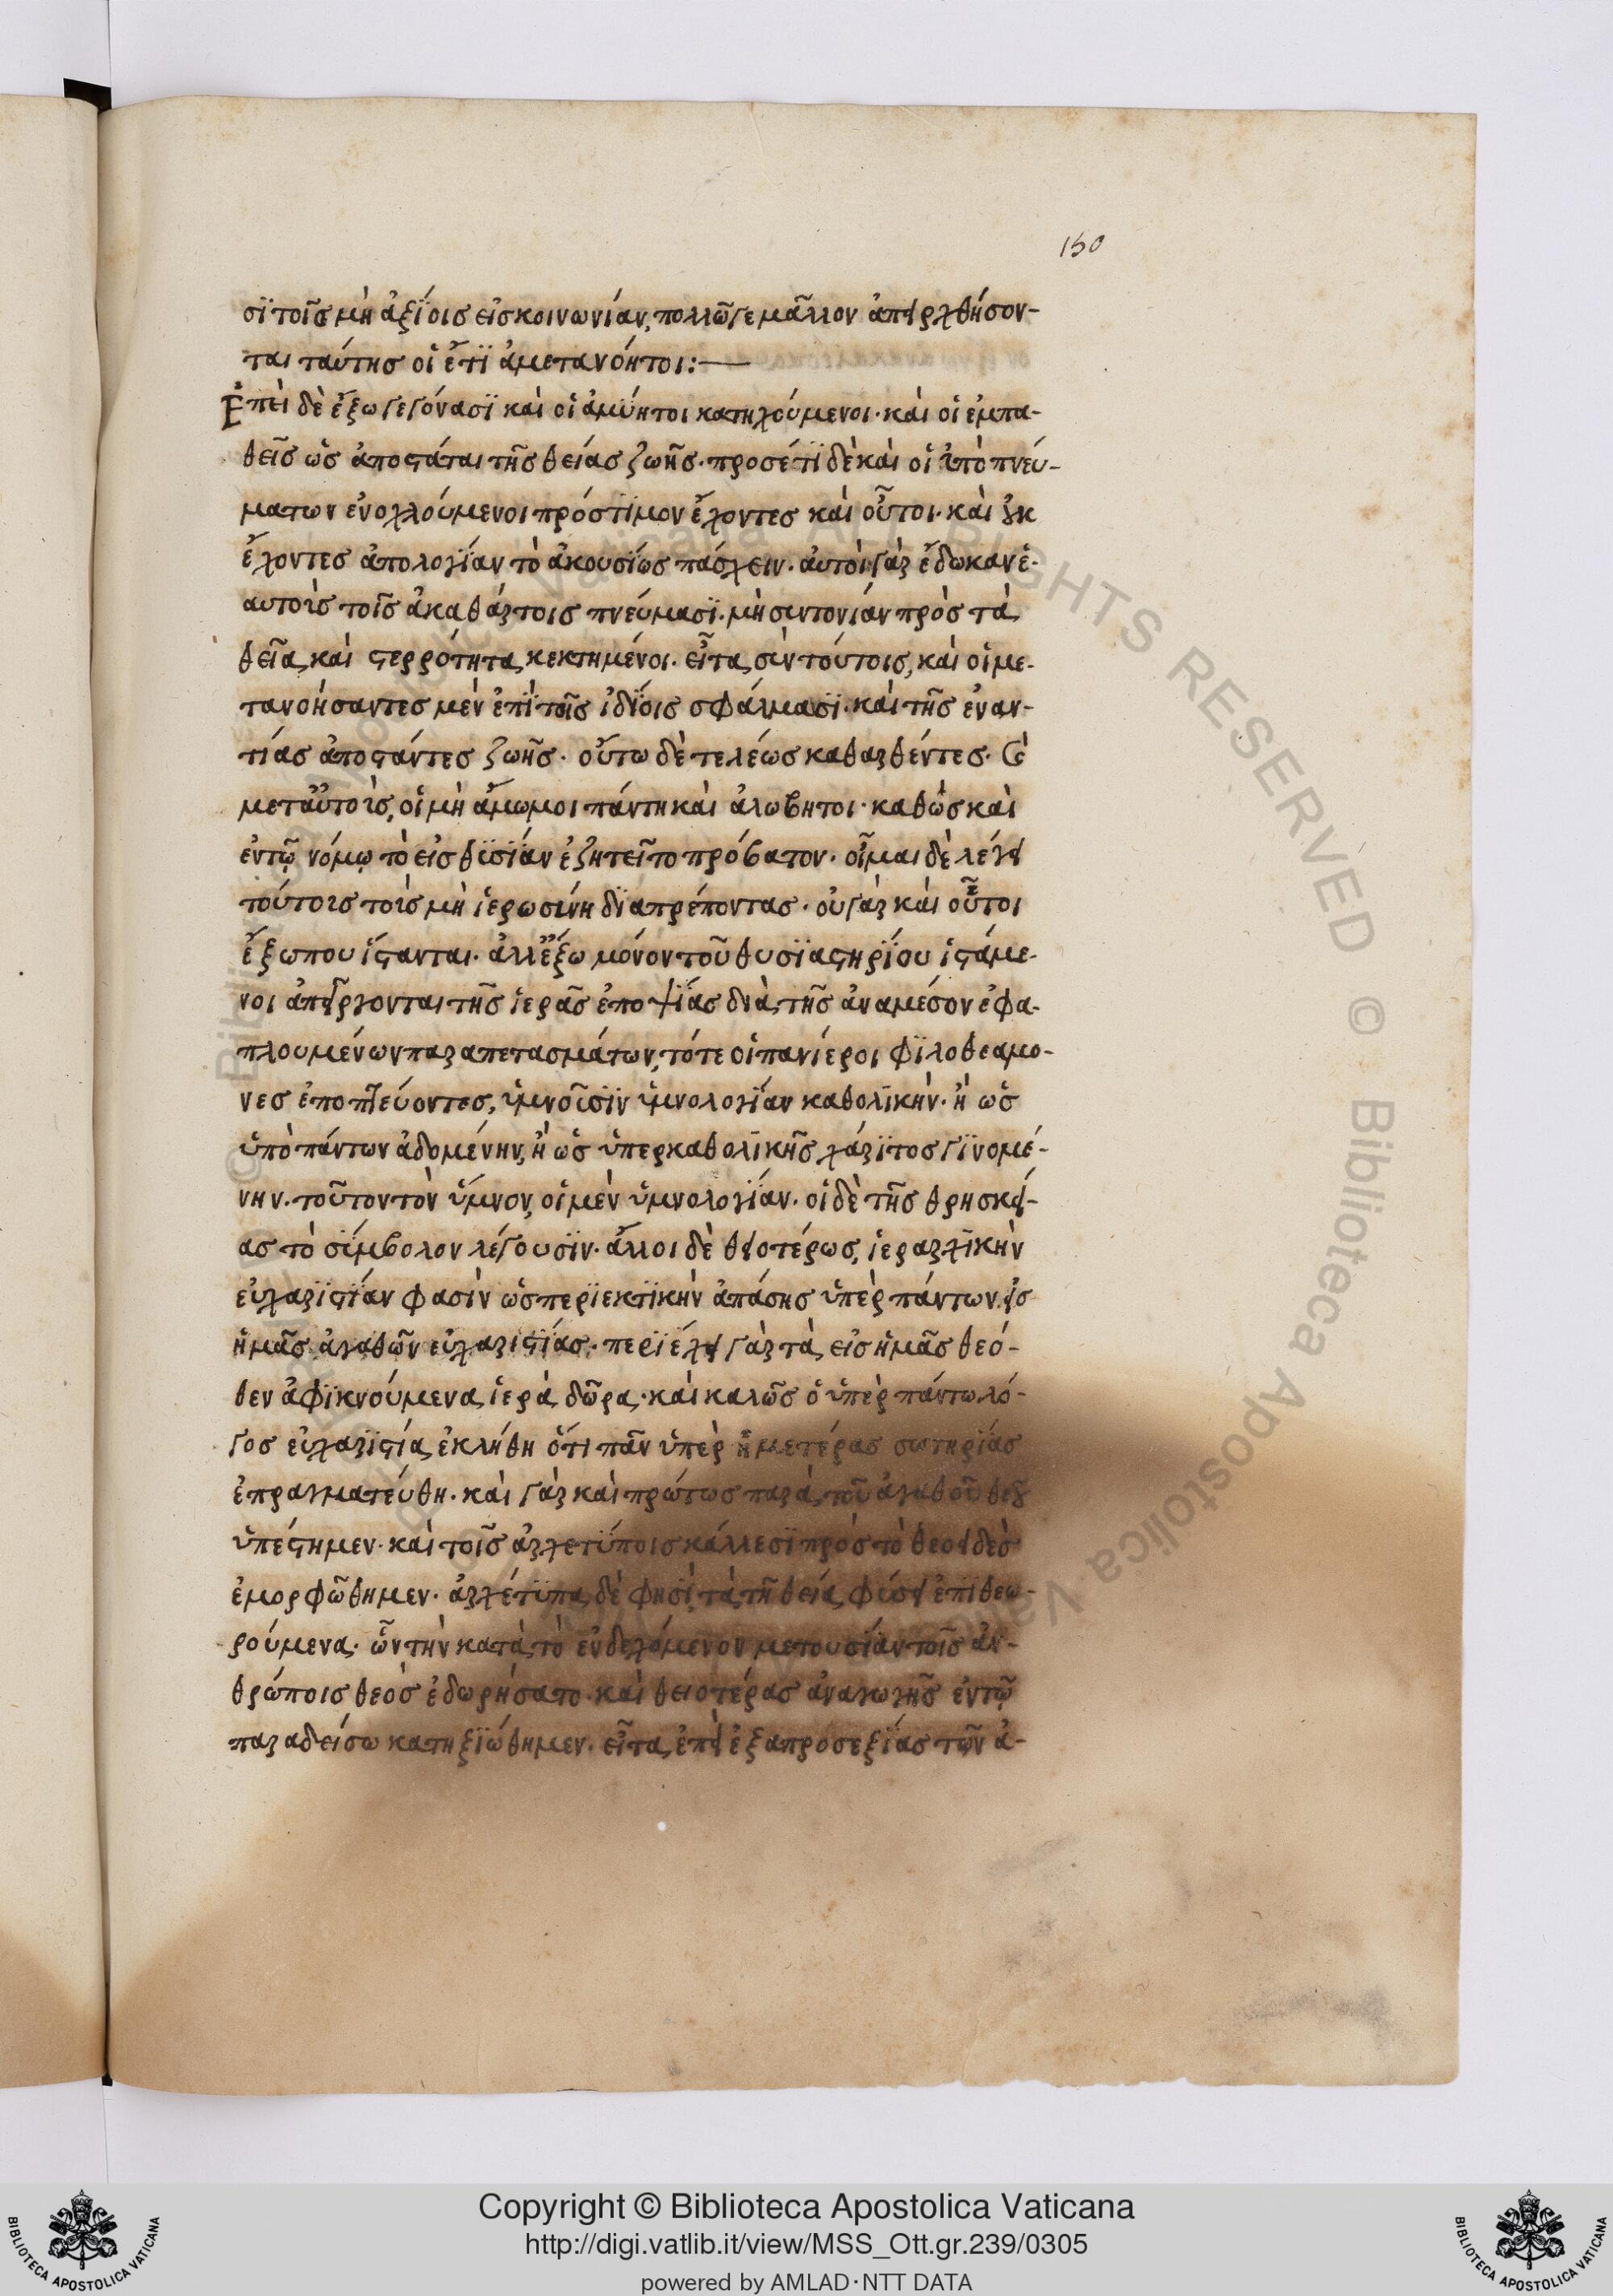 150
σϊ τοῖς μὴ ἀξϊοις εἰς κοινωνίαν, πολλῶ γε μᾶλλον ἀπειρχθήσον-
ται ταύτης οἱ ἔτϊ ἀμετανόητοι:—
Ἐπεὶ δὲ ἔξω γεγόνασϊ καὶ οἱ ἀμϋητοι κατηχούμενοι· καὶ οἱ ἐμπα-
θεῖς ὡς ἀποστάται τῆς θείας ζωῆς· προσέτϊ δὲ καὶ οἱ ὑπὸ πνευ-
μάτων ἐνοχλούμενοι πρόστϊμον ἔχοντες καὶ οὗτοι· καὶ οὐκ
ἔχοντες ἀπολογϊαν τὸ ἀκουσϊως πάσχειν· αὐτοὶ γὰρ ἔδωκαν ἑ-
αυτοὺς τοῖς ἀκαθάρτοις πνεύμασϊ· μὴ συντονίαν πρὸς τὰ
θεῖα καὶ στερρότητα κεκτημένοι· εἶτα σὺν τούτοις, καὶ οἱ με-
τανοήσαντες μὲν ἐπὶ τοῖς ἰδϊοις σφάλμασϊ· καὶ τῆς ἐναν-
τίας ἀποστάντες ζωῆς· οὔπω δὲ τελέως καθαρθέντες· καὶ
μετ' αὐτοὺς, οἱ μὴ ἄμωμοι πάντη καὶ ἀλώβητοι· καθὼς καὶ
ἐν τῷ νόμῳ τὸ εἰς θυσϊαν ἐζητεῖτο πρόβατον· οἶμαι δὲ λέγει
τούτους τοὺς μὴ ἱερωσύνη δϊαπρέποντας· οὐ γὰρ καὶ οὗτοι
ἔξω που ἵστανται· ἀλλ' ἔξω μόνον τοῦ θυσϊαστηρϊου ἱστάμε-
νοι ἀπείργονται τῆς ἱερᾶς ἐποψϊας διὰ τῆς ἀναμέσον ἐφα-
πλουμένων παραπετασμάτων, τότε οἱ πανίεροι φϊλοθεάμο-
νες ἐποπτεύοντες, ὑμνοῦσϊν ὑμνολογϊαν καθολϊκήν· ἢ ὡς
ὑπὸ πάντων ἀδομένην, ἢ ὡς ὑπερ καθολϊκῆς χάρϊτος γϊνομέ-
νην· τοῦτον τὸν ὕμνον, οἱ μὲν ὑμνολογϊαν· οἱ δὲ τῆς θρησκεί-
ας τὸ σύμβολον λέγουσϊν· ἄλλοι δὲ θειοτέρως, ἱεραρχϊκὴν
εὐχαρϊστϊαν φασὶν ὡς περϊεκτϊκὴν ἁπάσης ὑπὲρ πάντων εἰς
ἡμᾶς ἀγαθῶν εὐχαριστϊας· περϊέχει γὰρ τὰ εἰς ἡμᾶς θεό-
θεν ἀφϊκνούμενα ἱερὰ δῶρα· καὶ καλῶς ὁ ὑπὲρ πάντω λό-
γος εὐχαρϊστία ἐκλήθη ὅτι πᾶν ὑπὲρ ἡμετέρας σωτηρϊας
ἐπραγματεύθη· καὶ γὰρ καὶ πρώτως παρὰ τοῦ ἀγαθοῦ θεοῦ
ὑπέστημεν· καὶ τοῖς ἀρχετύποις κάλλεσϊ πρὸς τὸ θεοειδὲς
ἐμορφώθημεν· ἀρχέτυπα δέ φησϊ, τὰ τῆ θεία φύσει ἐπϊθεω-
ρούμενα· ὧν τὴν κατὰ τὸ ἐνδεχόμενον μετουσίαν τοῖς ἀν-
θρώποις θεὸς ἐδωρήσατο· καὶ θειοτέρας ἀναγωγῆς ἐν τῷ
παραδείσω κατηξϊώθημεν· εἶτα, ἐπεὶ ἐξ ἀπροσεξϊας τῶν ἀ-
© Biblioteca Apostolica Vaticana
ALL RIGHTS RESERVED
BIBLIOTECA APOSTOLICA VATICANA
Copyright © Biblioteca Apostolica Vaticana
http://digi.vatlib.it/view/MSS_Ott.gr.239/0305
powered by AMLAD·NTT DATA
BIBLIOTECA APOSTOLICA VATICANA